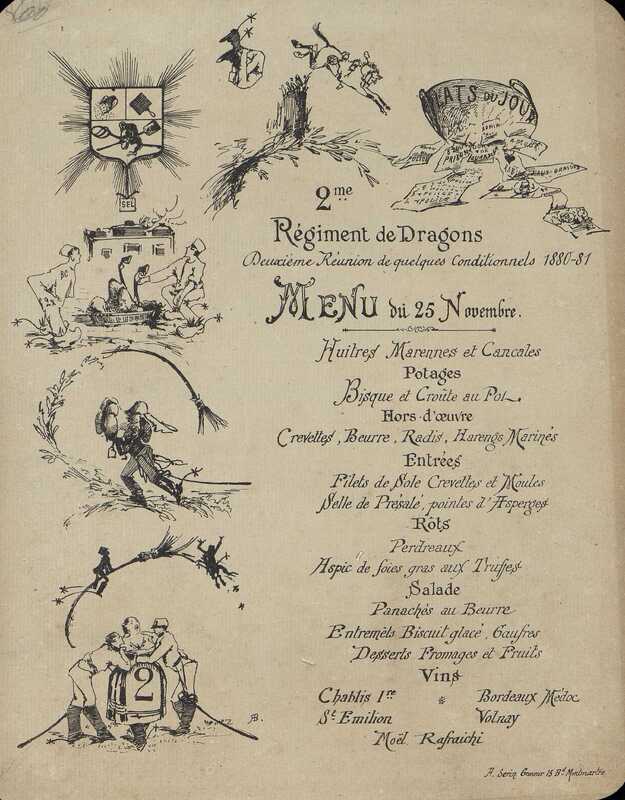 PLATS DU JOUR
SEL
BC
2me
Régiment de Dragons
Deuxième Réunion de quelques Conditionnels 1880-81
MENU du 25 Novembre.
Huitres Marennes et Cancales
Potages
Bisque et Croûte au Pot
Hors-d'œuvre
Crevettes, Beurre, Radis, Harengs Marinés
Entrées
Filets de Sole Crevettes et Moules
Selle de Présalé, pointes d'Asperges
Rôts
Perdreaux
Aspic de foies gras aux Truffes
Salade
Panachés au Beurre
Entremêts Biscuit glacé, Gaufres
Desserts Fromages et Fruits
Vins
Chablis 1re * Bordeaux Médoc
St Emilion Volnay
Moët Rafraichi
2
B.
15 Bd Montmartre